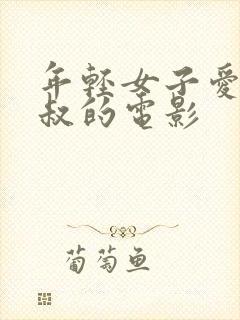 年輕女子愛
叔的電影
葡萄鱼